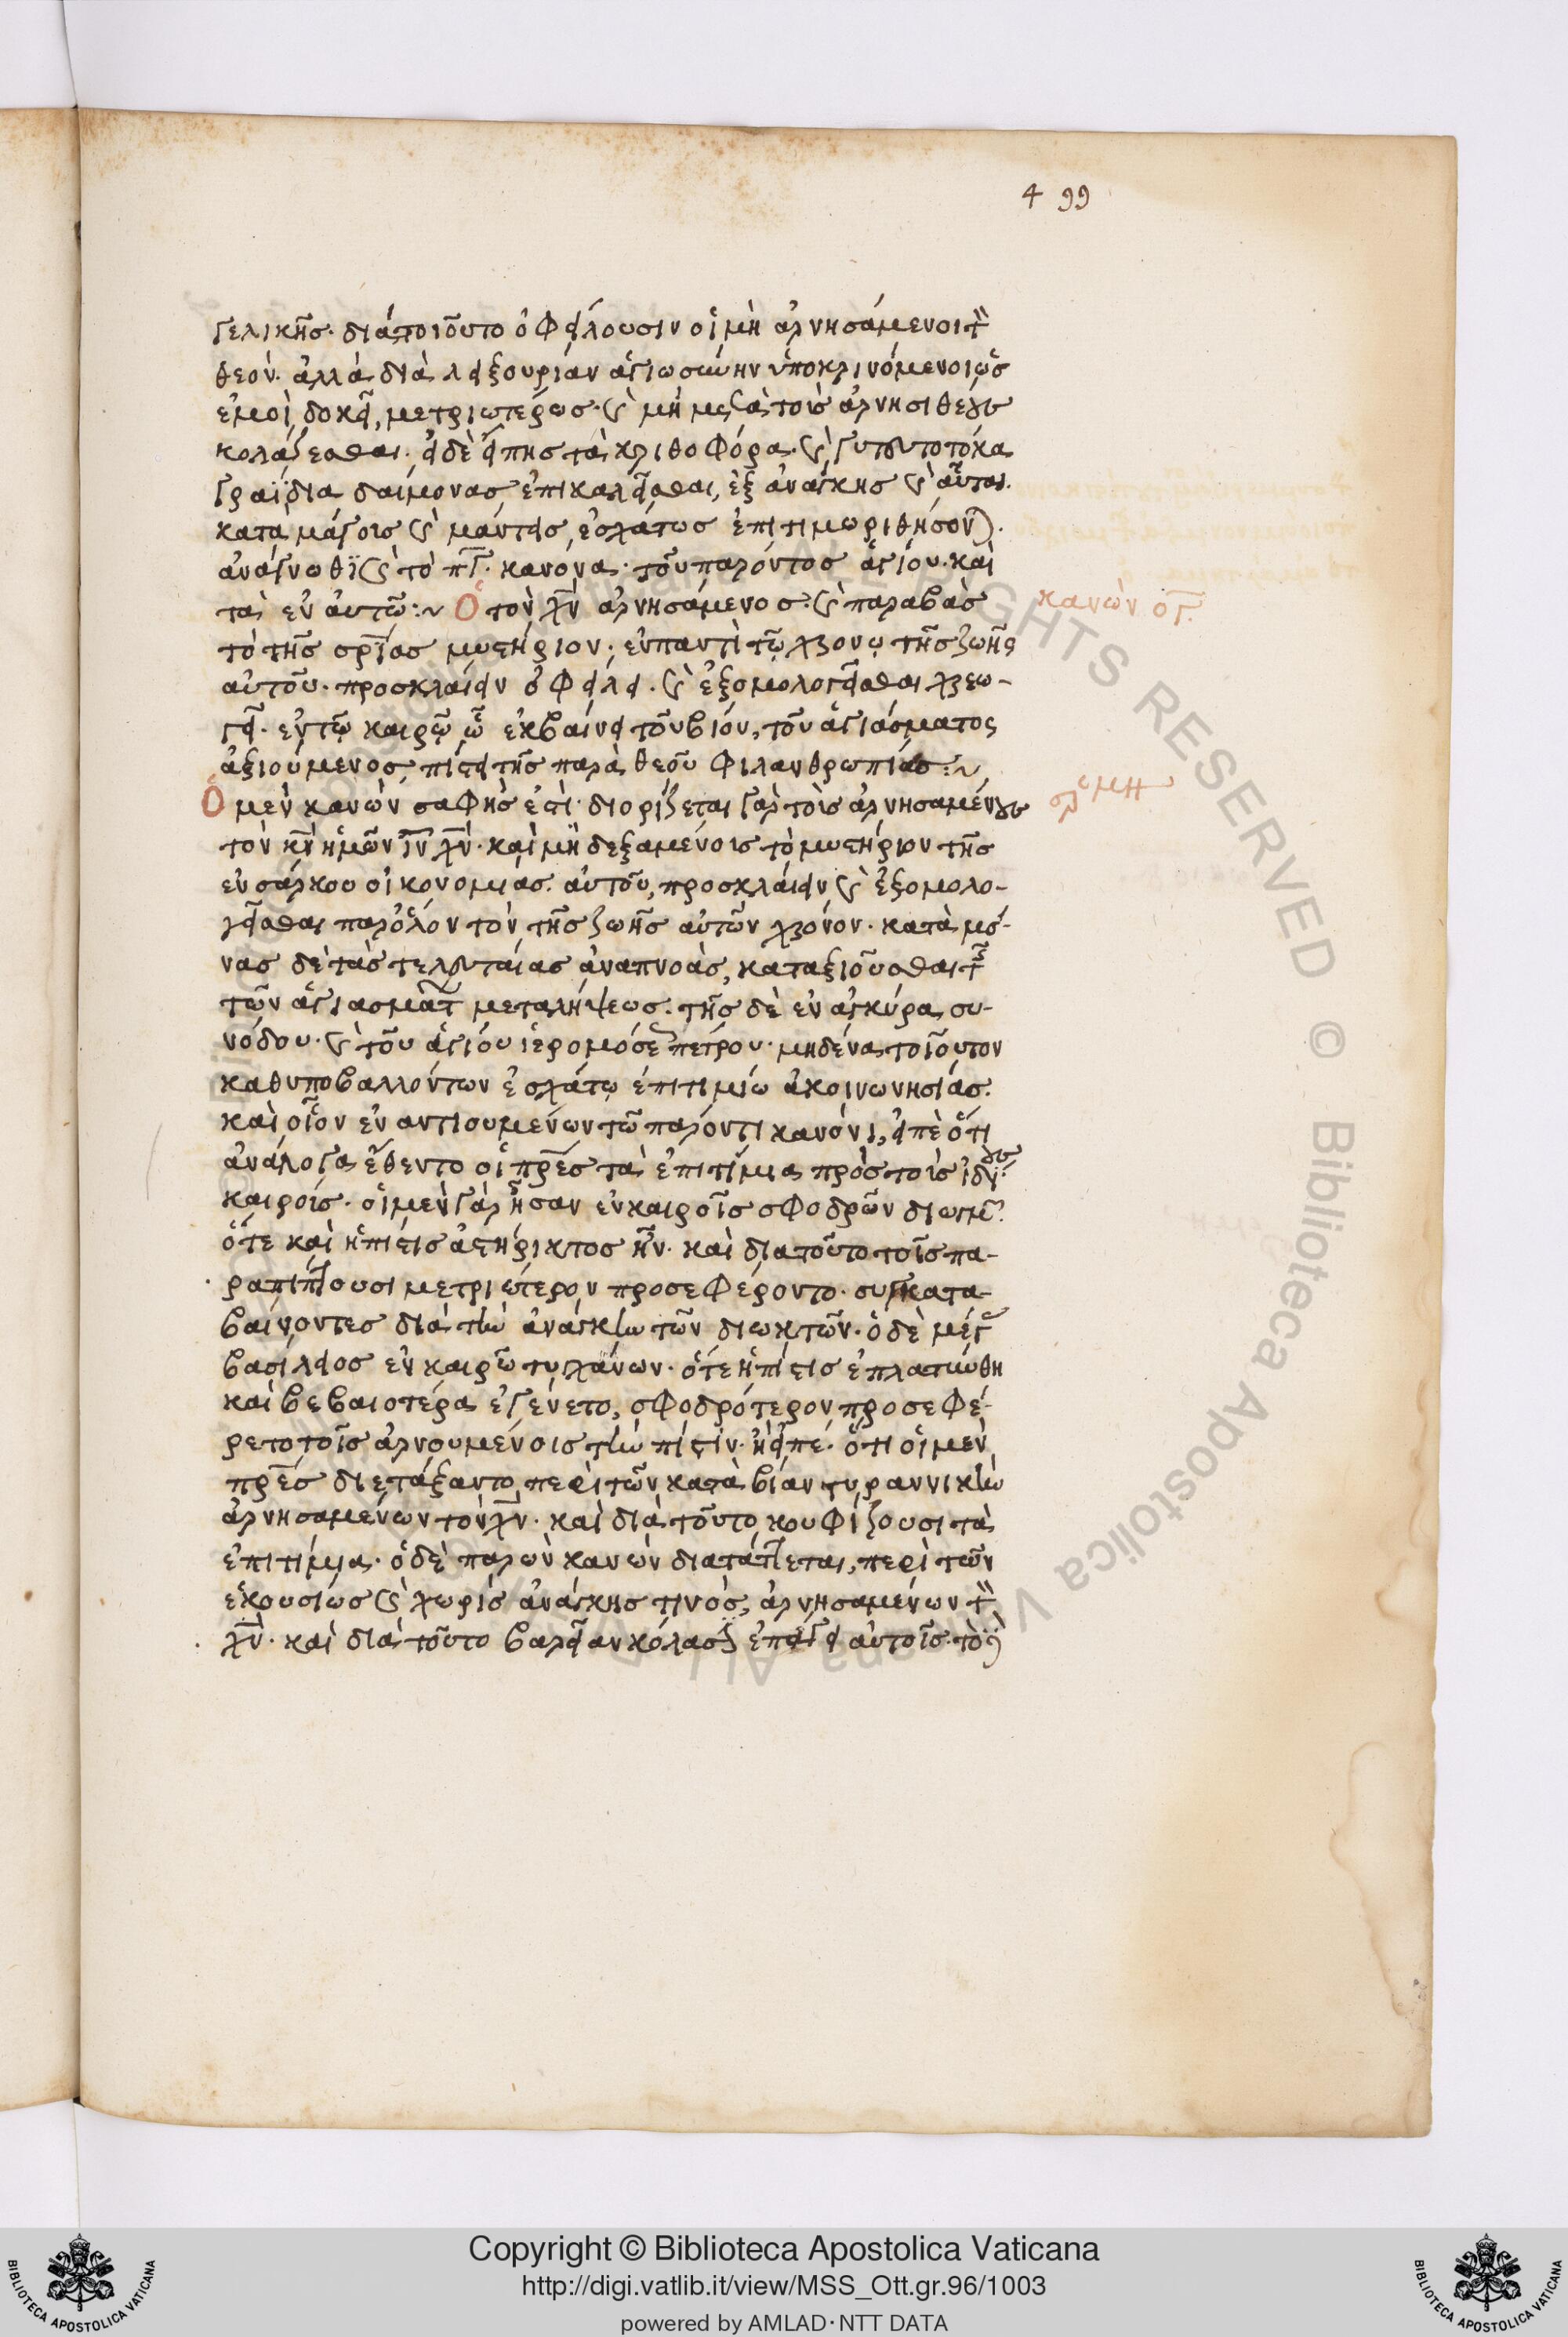 499
γελικῆς· διάτοι τοῦτο ὀφείλουσιν οἱ μὴ ἀρνησάμενοι τὸν
θεόν· ἀλλὰ διὰ λειξουρίαν ἁγιωσύνην ὑποκρινόμενοι, ὡς
ἐμοὶ δοκεῖ, μετριωτέρως· καὶ μὴ μετὰ τοῖς ἀρνησιθέοις
κολάζεσθαι· εἰ δὲ εἴπῃς τὰ κριθοφόρα· καὶ
γραΐδια δαίμονας ἐπικαλεῖσθαι, ἐξ ἀνάγκης καὶ αὗται
κατὰ μάγοις καὶ μάντεις, ἐσχάτως ἐπιτιμωρηθήσονται.
ἀνάγνωθι καὶ τὸ πγ. κανόνα· τοῦ παρόντος ἁγίου· καὶ
τὰ ἐν αὐτῷ:~ Ὁ τὸν χν ἀρνησάμενος· καὶ παραβὰς
κανὼν ογ.
τὸ τῆς σρίας μυστήριον· ἐν παντὶ τῷ χρόνῳ τῆς ζωῆς
αὐτοῦ· προσκλαίειν ὀφείλει· καὶ ἐξομολογεῖσθαι χρεω-
στεῖ· ἐν τῷ καιρῷ ᾧ ἐκβαίνει τοῦ βίου, τοῦ ἁγιάσματος
ἀξιούμενος, πίστει τῆς παρὰ θεοῦ φιλανθρωπίας:~
Ὁ μὲν κανὼν σαφής ἐστι· διορίζεται γὰρ τοῖς ἀρνησαμένοις
τὸν κν ἡμῶν ιν χν· καὶ μὴ δεξαμένοις τὸ μυστήριον τῆς
ἐνσάρκου οἰκονομίας αὐτοῦ, προσκλαίειν καὶ ἐξομολο-
γεῖσθαι παρ' ὅλον τὸν τῆς ζωῆς αὐτῶν χρόνον· κατὰ μό-
νας δὲ τὰς τελευταίας ἀναπνοάς, καταξιοῦσθαι τῆς
τῶν ἁγιασμάτων μεταλήψεως· τῆς δὲ ἐν ἀγκύρᾳ συ-
νόδου· καὶ τοῦ ἁγίου ἱερομάρτυρος πέτρου· μηδένα τοιοῦτον
καθυποβαλλόντων ἐσχάτῳ ἐπιτιμίῳ ἀκοινωνησίας·
καὶ οἷον ἐναντιουμένων τῷ παρόντι κανόνι, εἰπὲ ὅτι
ἀνάλογα ἔθεντο οἱ πρες τὰ ἐπιτίμια πρὸς τοῖς ἰδίοις
καιροῖς· οἱ μὲν γὰρ ἦσαν ἐν καιροῖς σφοδρῶν διωγμῶν·
ὅτε καὶ ἡ πίστις ἀστήρικτος ἦν· καὶ διατοῦτο τοῖς πα-
ραπίπτουσι μετριώτερον προσεφέροντο· συγκατα-
βαίνοντες διὰ τὴν ἀνάγκην τῶν διωκτῶν· ὁ δὲ μέγας
βασίλειος ἐν καιρῷ τυγχάνων· ὅτε ἡ πίστις ἐπλατύνθη
καὶ βεβαιοτέρα ἐγένετο, σφοδρότερον προσεφέ-
ρετο τοῖς ἀρνουμένοις τὴν πίστιν· ἢ εἰπέ· ὅτι οἱ μὲν
πρες διετάξαντο περὶ τῶν κατὰ βίαν τυραννικὴν
ἀρνησαμένων τὸν χν· καὶ διὰ τοῦτο κουφίζουσι τὰ
ἐπιτίμια· ὁ δὲ παρὼν κανὼν διατάττεται, περὶ τῶν
ἑκουσίως καὶ χωρὶς ἀνάγκης τινός, ἀρνησαμένων τὸν
χν· καὶ διὰ τοῦτο βαρεῖαν κόλασιν ἐπάγει αὐτοῖς· τὸ